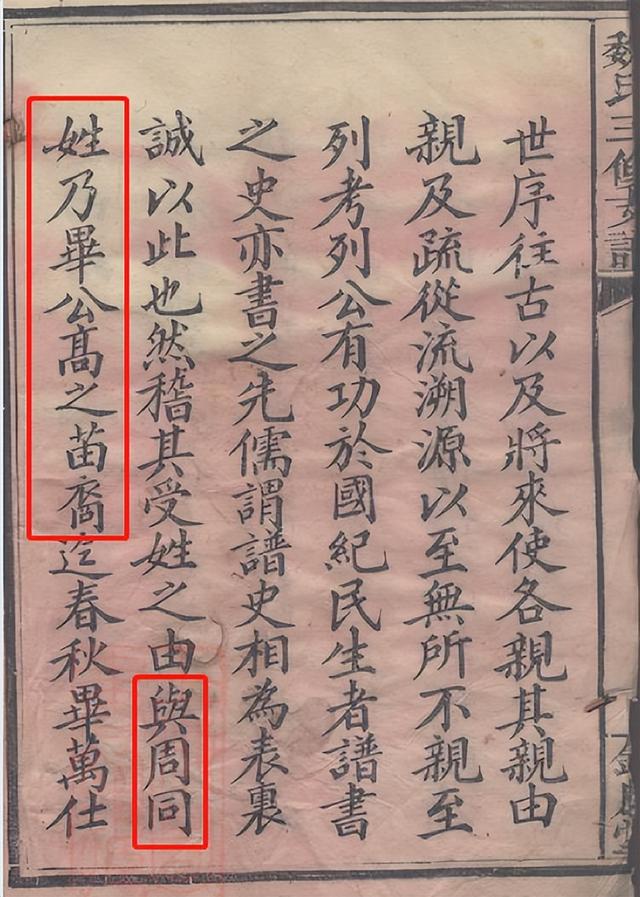 魏氏三修支譜
世序往古以及將來使各親其親由
親及疏從流溯源以至無所不親至
列考列公有功於國紀民生者譜書
之史亦書之先儒謂譜史相為表裏
誠以此也然稽其受姓之由與周同
姓乃畢公高之苗裔迄春秋畢萬仕